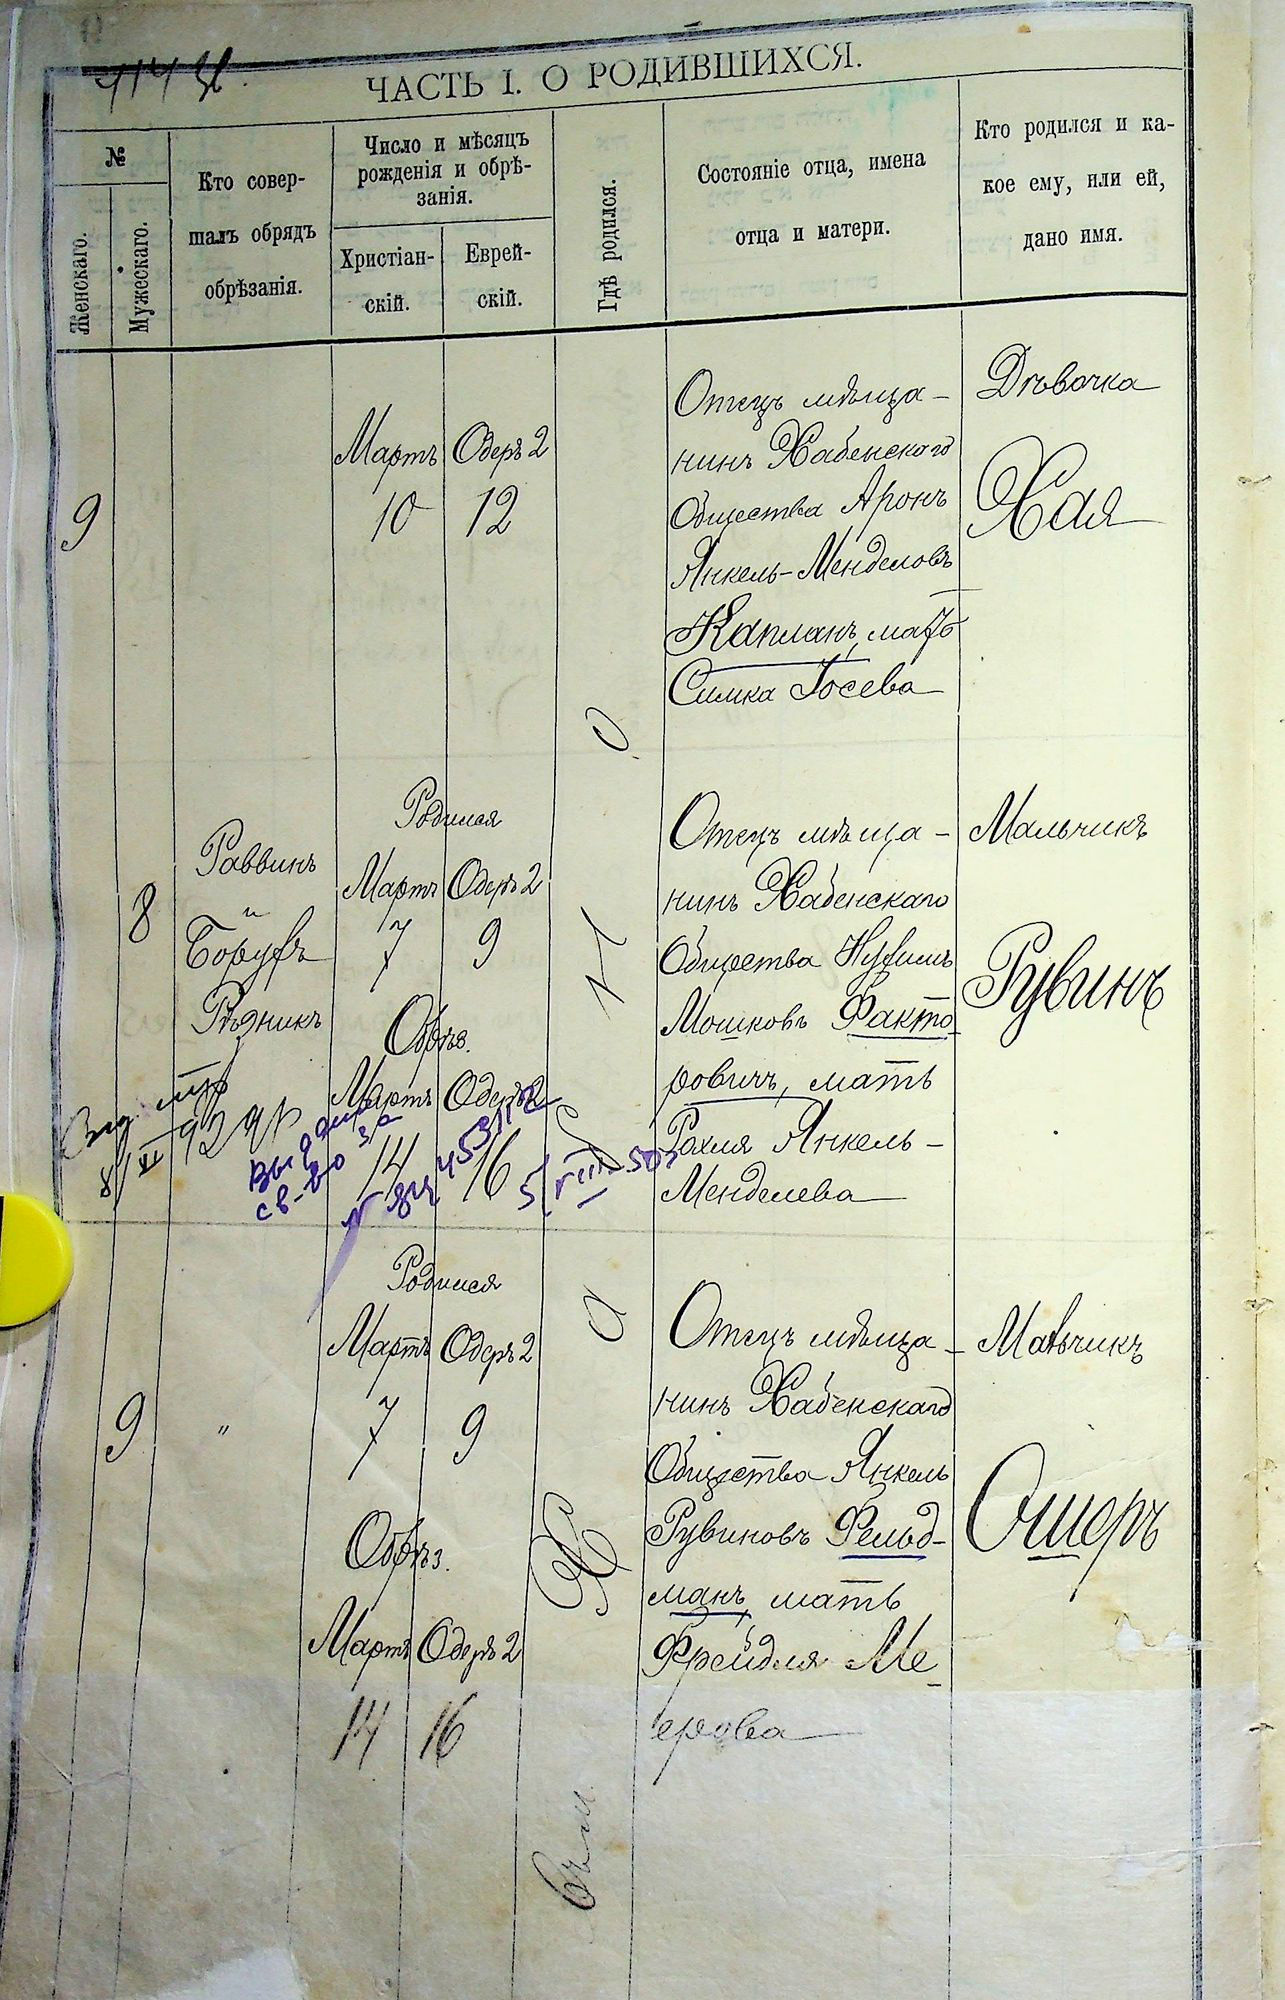 ЧАСТЬ I. О РОДИВШИХСЯ.
№
Женскаго.
Мужескаго.
Кто совер-
шалъ обрядъ
обрѣзанія.
Число и мѣсяцъ
рожденія и обрѣ-
занія.
Христіан-
скій.
Еврей-
скій.
Гдѣ родился.
Состояніе отца, имена
отца и матери.
Кто родился и ка-
кое ему, или ей,
дано имя.
9
Мартъ
10
Одеръ 2
12
Отецъ мѣща-
нинъ Хабенскаго
Общества Аронъ
Янкель-Менделовъ
Капланъ, мать
Симка Іосева
Дѣвочка
Хая
8
Раввинъ
и
Борухъ
Рѣзникъ
Родился
Мартъ
7
Одеръ 2
9
Обрѣз.
Мартъ
14
Одеръ 2
16
Отецъ мѣща-
нинъ Хабенскаго
Общества Нухимъ
Мошковъ Факто-
ровичъ, мать
Рохля Янкель-
Менделева
Мальчикъ
Рувинъ
Выдано
св-во за
№
9
"
Родился
Мартъ
7
Одеръ 2
9
Обрѣз.
Мартъ
14
Одеръ 2
16
Отецъ мѣща-
нинъ Хабенскаго
Общества Янкель
Рувиновъ Фельд-
манъ, мать
Фрейдля Ме-
ерова
Мальчикъ
Ошеръ